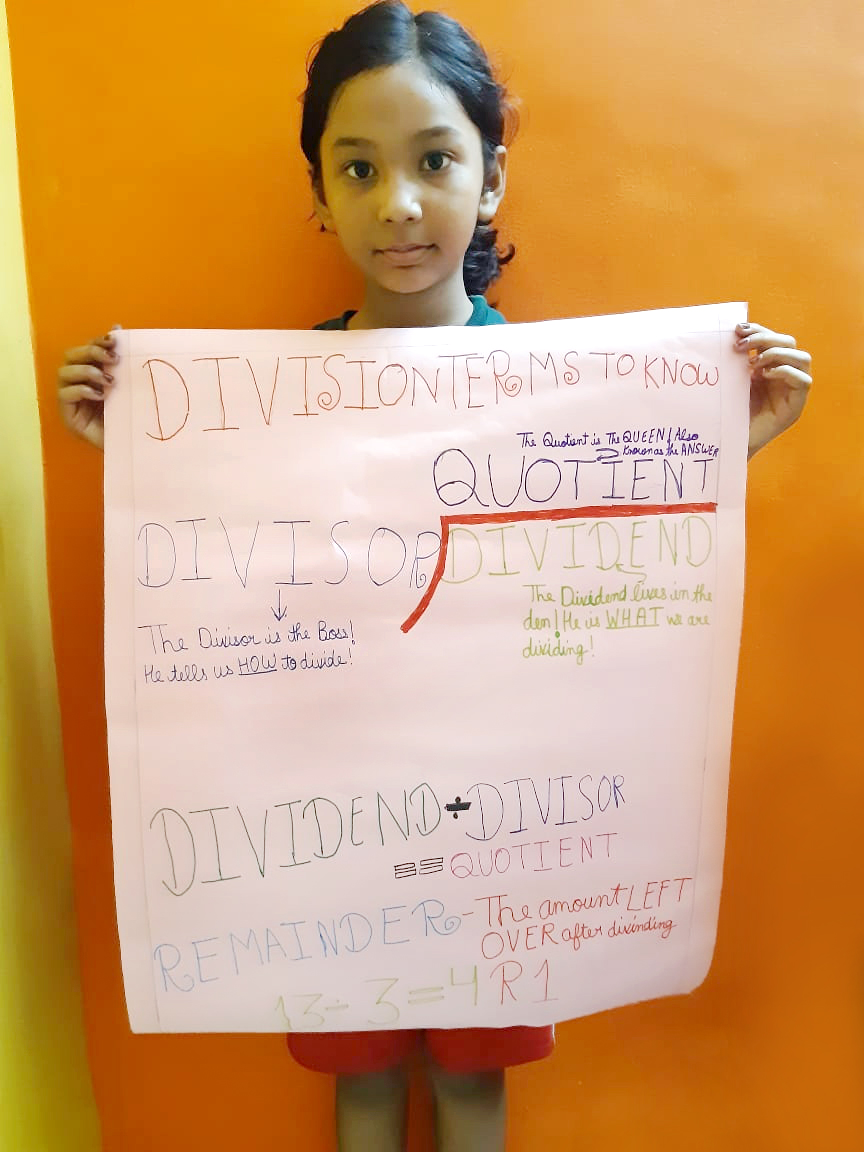 DIVISION TERMS TO KNOW
The Quotient is The QUEEN! Also
Known as the ANSWER
QUOTIENT
DIVISOR DIVIDEND
The Divisor is the Boss!
He tells us HOW to divide!
The Dividend lives in the
den! He is WHAT we are
dividing!
DIVIDEND ÷ DIVISOR
= QUOTIENT
REMAINDER - The amount LEFT
OVER after divinding
13 ÷ 3 = 4 R 1